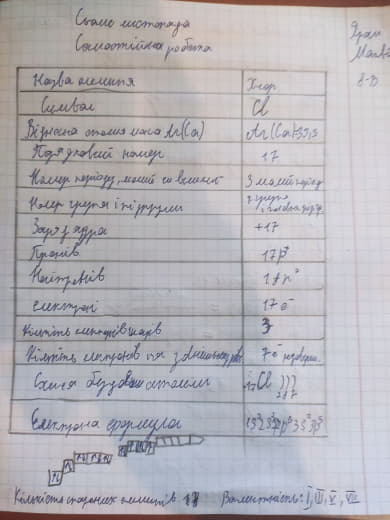 Сьоме листопада
Самостійна робота
Грам
Матві
8-В
Назва елемента Хлор
Символ Cl
Відносна атомна маса Ar(Ca) Ar(Ca)=35,5
Порядковий номер 17
Номер періоду, малий чи великий 3 малий період
Номер групи і підгрупи 7 група
Заряд ядра +17
Протонів 17p⁺
Нейтронів 18n⁰
електрони 17 e⁻
Кількість електронів шарів 3
Кількість електронів на зовнішньому рівні 7e⁻
Схема будови атома 17Cl )))
2 8 7
Електрона формула 1s²2s²2p⁶3s²3p⁵
Кількість спарених електронів 17 Валентність: I, III, V, VII